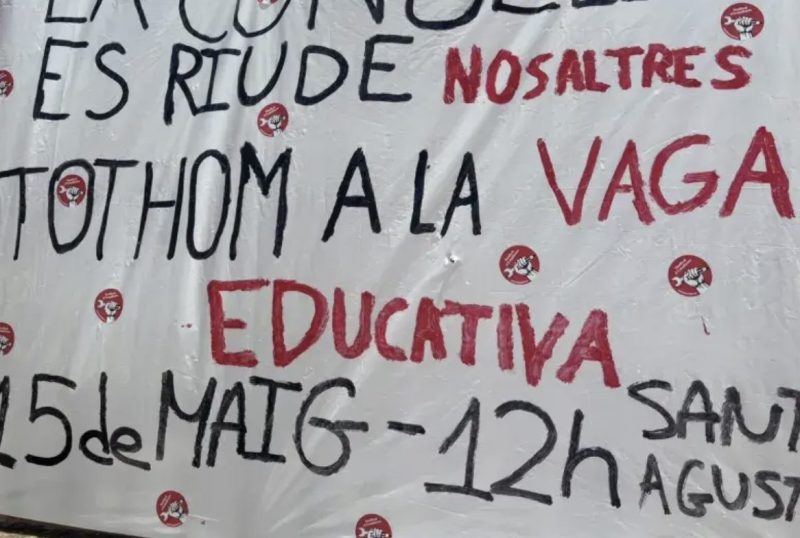 LA CONSELL
ES RIU DE NOSALTRES
TOTHOM A LA VAGA
EDUCATIVA
15 de MAIG - 12h SANT
AGUST